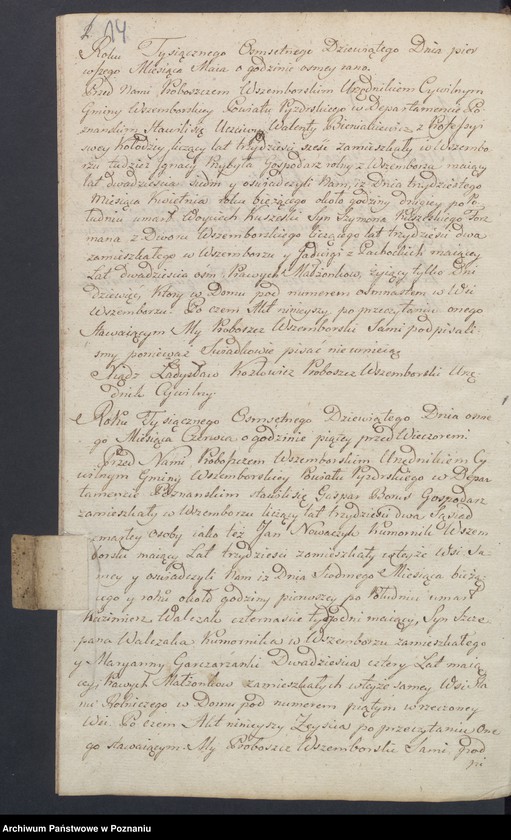 2 14
Roku Tysiącznego Osmsetnego Dziewiątego Dnia pier
wszego Miesiąca Maia o godzinie osmey rano.
Przed Nami Proboszczem Wszemborskim Urzędnikiem Cywilnym
Gminy Wszemborskiey Powiatu Pyzdrskiego w Departamencie Po
znanskim stawili się Uczciwy Walenty Pieniażkiewicz z Professyi
swey kołodziey liczący lat trzydzieści sześć zamieszkały w Wszembo
rzu tudzież Ignacy Przybyła Gospodarz rolny z Wszemborza maiący
lat dwadzieścia siedm y oświadczyli Nam, iż Dnia trzydziestego
Miesiąca Kwietnia roku bieżącego około godziny drugiey po Po
łudniu umarł Woyciech Kuszelski Syn Szymona Kuszelskiego For
mana z Dworu Wszemborskiego liczącego lat trzydzieści dwa
zamieszkałego w Wszemborzu y Jadwigi z maiącey
Lat dwadzieścia osm, Prawych Małżonków, żyiący tylko Dni
dziewięć, który w Domu pod numerem osmnastem w Wsi
Wszemborzu. Po czem Akt ninieyszy po przeczytaniu onego
stawaiącym My Proboszcz Wszemborski Sami podpisali
śmy ponieważ Świadkowie pisać nie umieią
Xiądz Ładysław Kozłowicz Proboszcz Wszemborski Urzę
dnik Cywilny.
Roku Tysiącznego Osmsetnego Dziewiątego Dnia osme
go Miesiąca Czerwca o godzinie piątey przed Wieczorem.
Przed Nami Proboszczem Wszemborskim Urzędnikiem Cy
wilnym Gminy Wszemborskiey Powiatu Pyzdrskiego w Depar
tamencie Poznanskim stawili się Gaspar Gospodarz
zamieszkały w Wszemborzu liczący lat trzydzieści dwa Sąsiad
zmarłey osoby iako też Jan Nowaczyk Kumornik Wszem
borski maiący Lat trzydzieści zamieszkały w teyże Wsi Sa
mey y oświadczyli Nam iż Dnia Siodmego Miesiąca bieżą
cego y roku około godziny pierwszey po Południu umarł
Kazimierz Walczak czternaście tygodni maiący, Syn Szcze
pana Walczaka Kumornika w Wszemborzu zamieszkałego
y Maryanny Garczarzanki Dwadzieścia cztery Lat maią
cey, Prawych Małżonków zamieszkałych w teyże samey Wsi Sta
nu Rolniczego w Domu pod numerem piątym w rzeczoney
Wsi. Po czem Akt ninieyszy Zeyścia po przeczytaniu One
go stawaiącym My Proboszcz Wszemborski Sami pod
pi
Archiwum Państwowe w Poznaniu